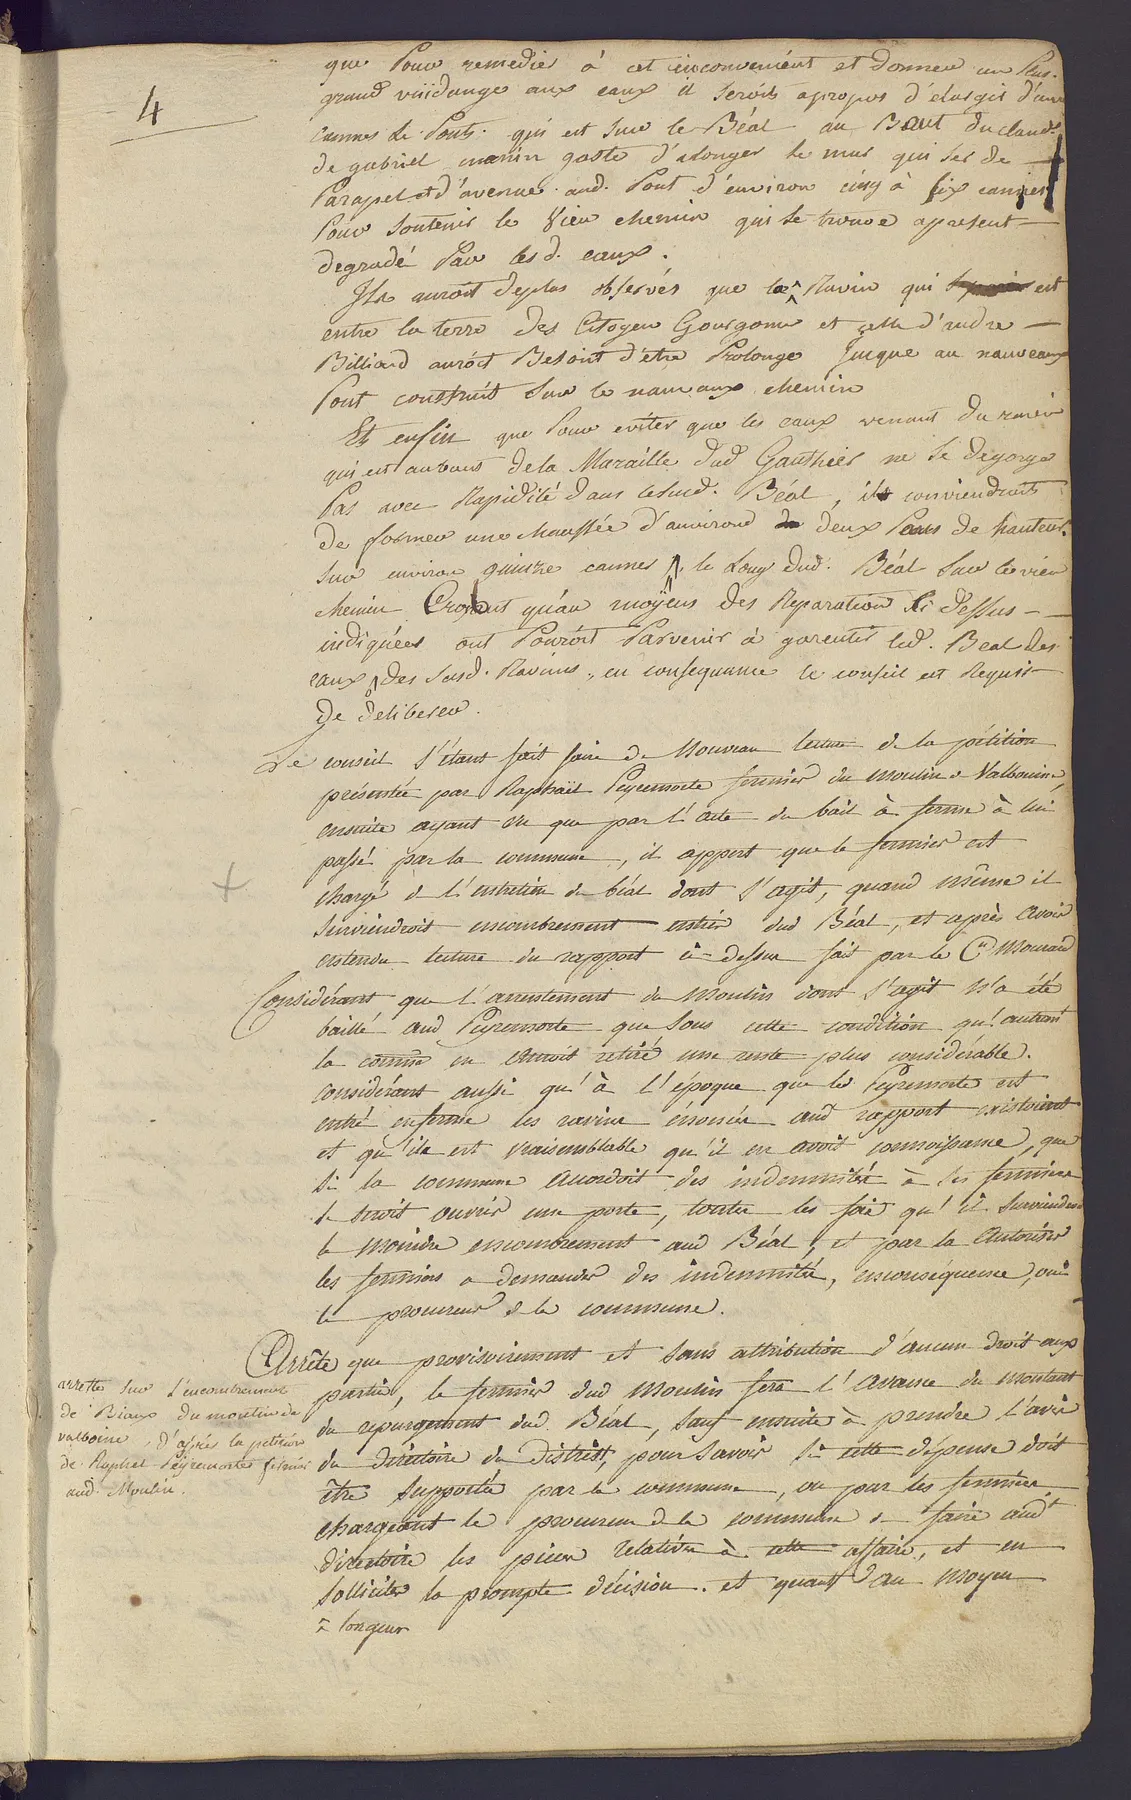 4
que Pour remedier à cet inconvenient et donner un Plus
grand vuidange aux eaux il seroit apropos d'elargir d'une
cannes le Pont. qui est sur le Béal au Baut du claud
de gabriel manin gaste d'alonger le mur qui ser de
Parapel et d'avenue aud. Pont d'environ cinq à six cannes
Pour soutenir le Vieu chemin qui se trouve apresent
degradé Par lesd. eaux.
Ils auroit deplus observés que le Ravin qui est
entre la terre des Citoyen Gourgonn et celle d'andre
Billiard auroit Besoint d'etre Prolonge jusque au nauveaux
Pont construit sur le nauveaux chemin
Et enfin que Pour eviter que les eaux venant du ravin
qui est aubaut de la Maraille dud Gauthier ne se degorge
Pas avec Rapidité dans lesusd. Béal, il conviendroit
de former une chaussée d'anviron deux Pans de hauteur
sur environ quinze cannes ^ le Long dud. Béal sur le vieu
chemin Croyant qu'au moÿens des Reparation Ci dessus
indiquées ont Pouroit Parvenir à garentir led. Beal des
eaux des susd. Ravins, en consequance le conseil est Requis
de deliberer.
Le conseil s'étant fait faire de Nouveau lecture de la pétition
présentée par Raphaël Peyremorte fermier du moulin de Valbonne,
ensuite ayant vu que par l'acte du bail à ferme à lui
passé par la commune, il appert que le fermier est
chargé de l'entretien du béal dont s'agit, quand même il
surviendroit encombrement entier dud Béal, et après avoir
entendu lecture du rapport ci-dessus fait par le Cn Mouraud
Considérant que l'arrentement du Moulin dont s'agit n'a été
baillé aud Peyremorte que sous cette condition qu'autremt
la comme en auroit retiré une rente plus considérable.
Considérant aussi qu'à l'époque que le Peyremorte est
entré enferme les ravins énoncés aud rapport existoient
et qu'ils est vraisemblable qu'il en avoit connoissance, que
si la commune accordoit des indemnités à ses fermiers
se seroit ouvrir une porte, toutes les fois qu'il surviendroit
le moindre encombrement aud Béal, et par la autoriser
les fermiers a demander des indemnités, enconséquence, oui
le procureur de la commune.
Arrête que provisoirement et sans attribution d'aucun droit aux
parties, le fermier dud Moulin fera l'avance du montant
du repurgement dud. Béal, sauf ensuite à prendre l'avis
du directoire du District, pour savoir si cette dépense doit
être supportée par la commune, ou par les fermiers,
chargeant le procureur de la commune de faire aud
directoire les pièces relatives à cette affaire, et en
solliciter la prompte décision. et quant au moyen
^ longeur
arrette sur l'encombrement
de Biaux du moulin de
valbonne, d'après la petition
de Raphel Peÿremortes fermier
aud. Moulin.